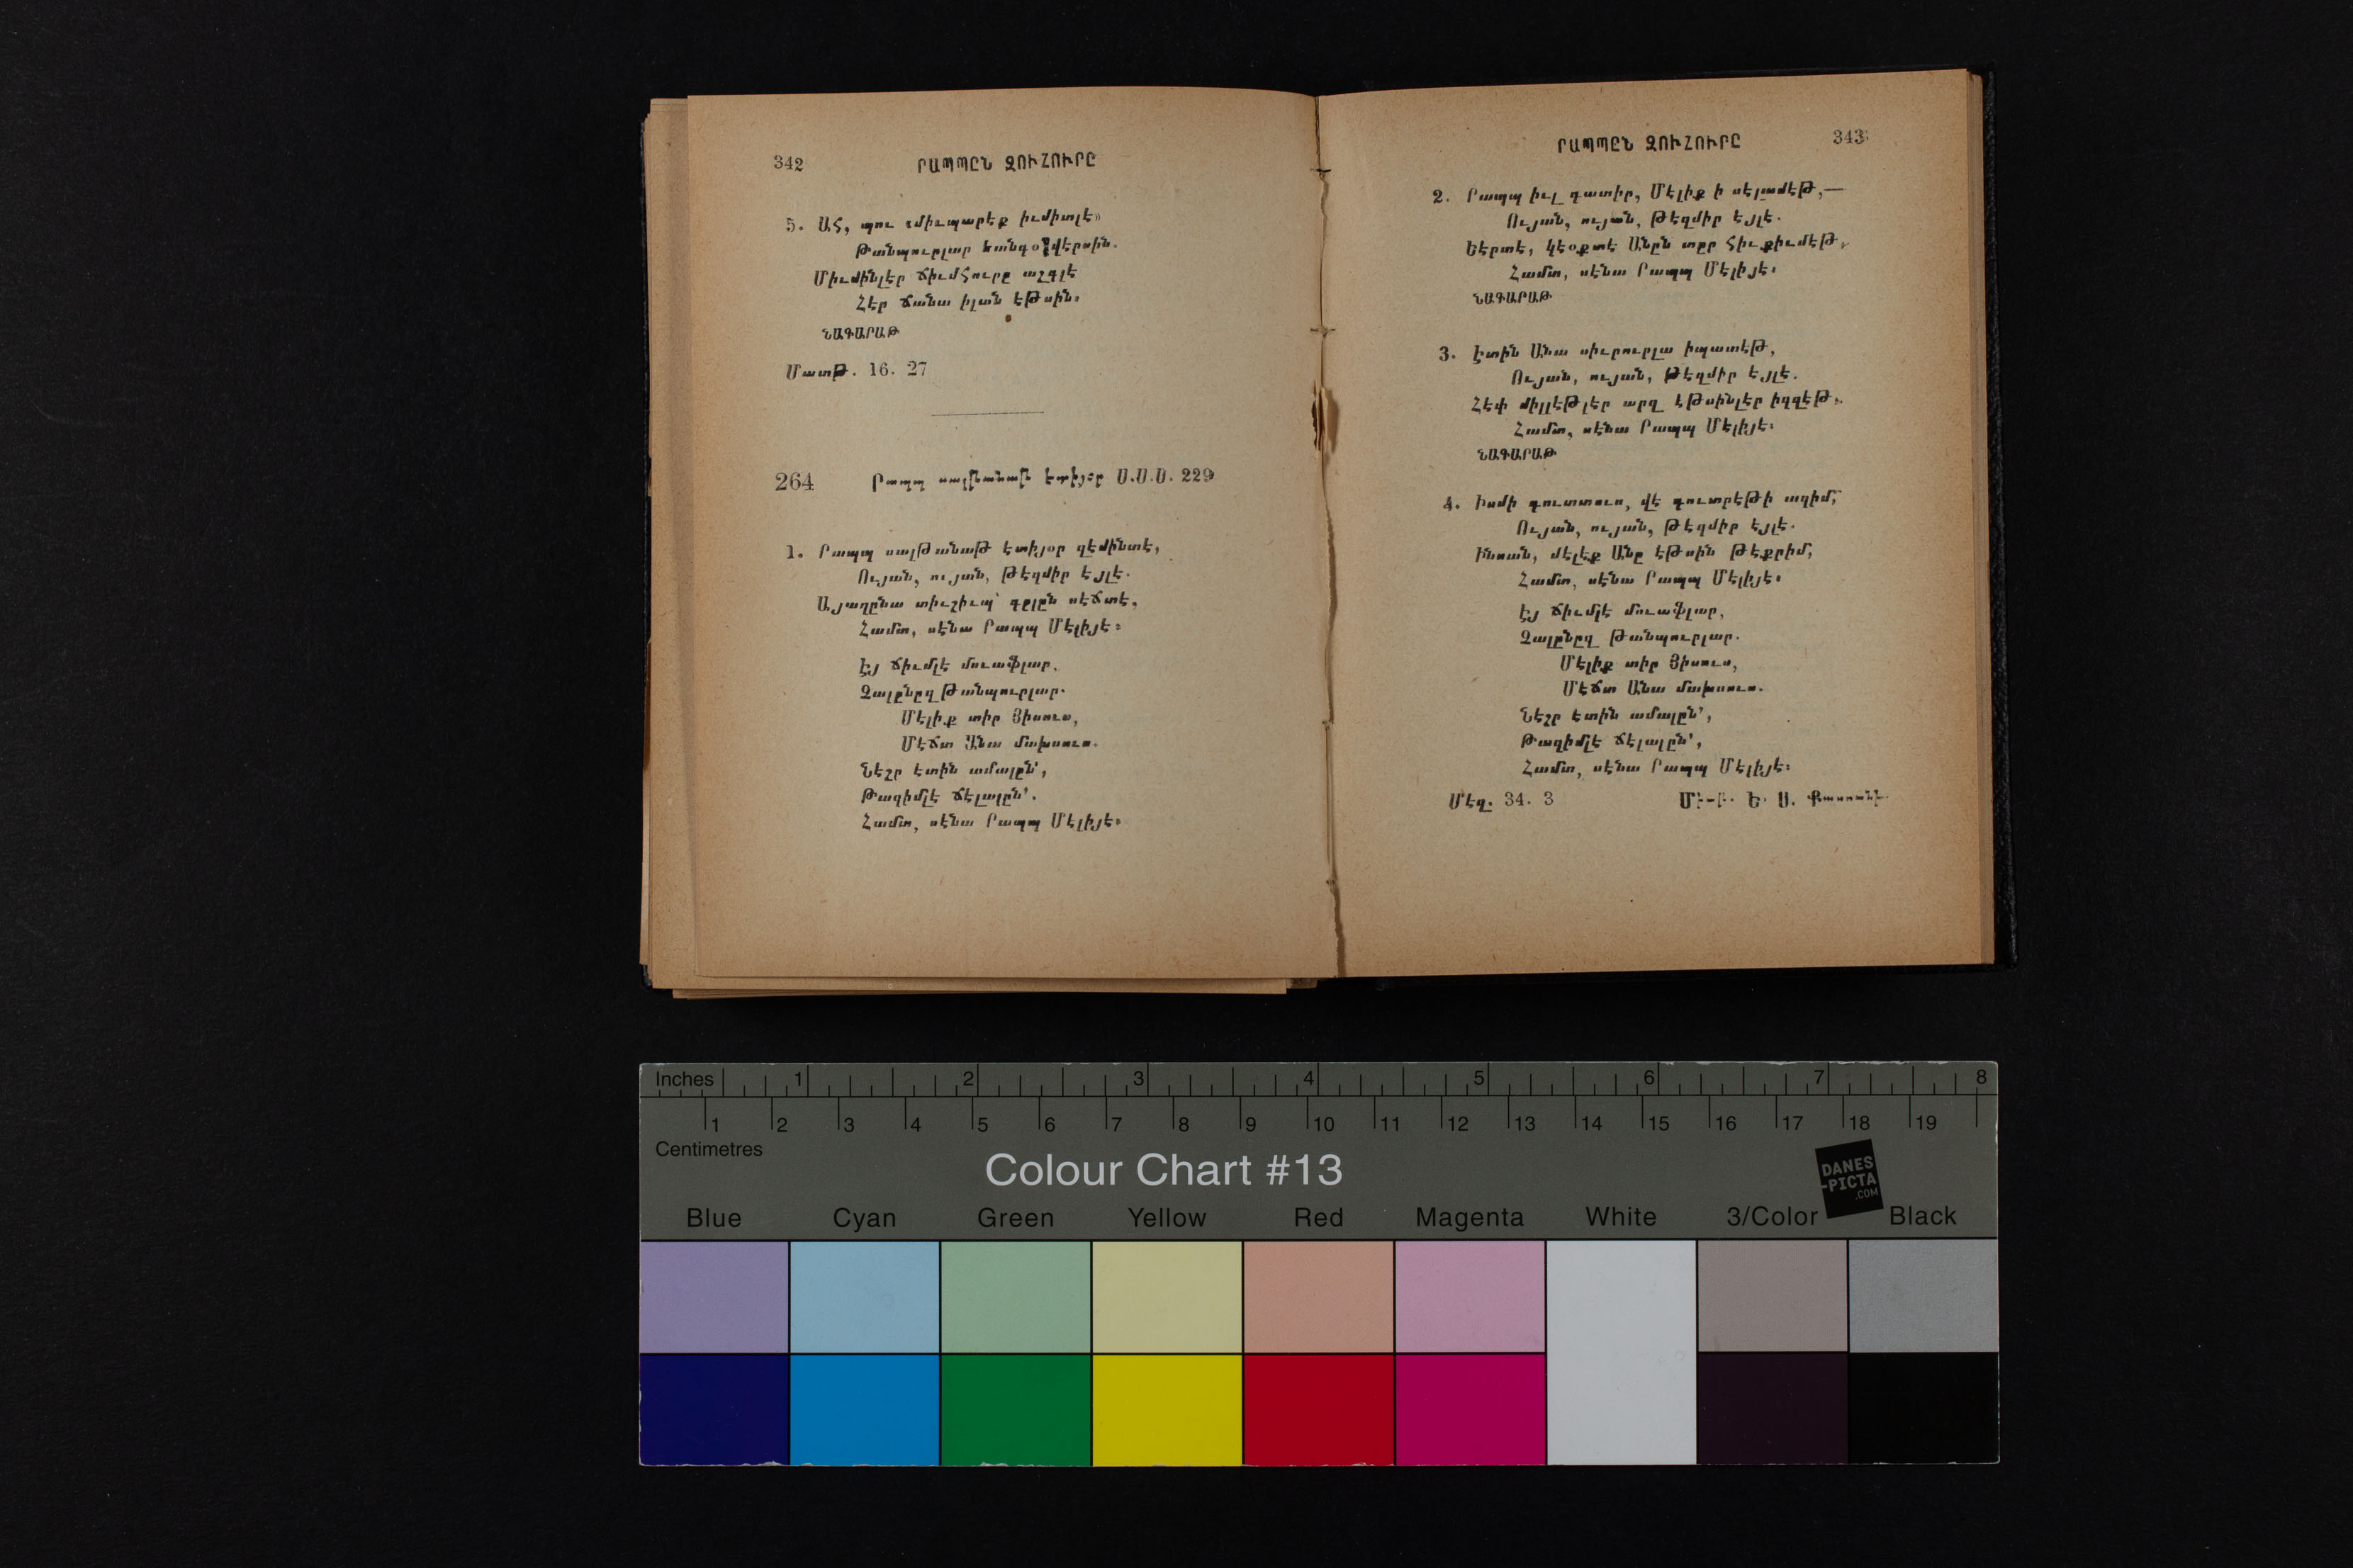 342
ՐԱՊՊԸՆ ԶՈՒՀՈՒՐԸ
5. ԱՀ, պու «միւպարէք իւմիտլէ»
Թանպուրլար
Միւմինլէր ճիւմհուրը աշգլէ
Հէր ճանա իլան էթսին։
ՆԱԳԱՐԱԹ
Մատթ. 16. 27
264 Րապպ սալթանաթ էտիյօր Ս.Ս.Ս. 229
1. Րապպ սալթանաթ էտիյօր զէմինտէ,
Ույան, ույան, թէզմիր էյլէ.
Այաղընա տիւշիւպ՝ գըլըն սէճտէ,
Համտ, սէնա Րապպ Մէլիյէ։
Էյ ճիւմլէ մուաֆլար,
Չալընըզ թանպուրլար.
Մէլիք տիր Յիսուս,
Մէճտ Անա մախսուս.
Նէշր էտին ամալըն՚,
Թազիմլէ ճէլալըն՚.
Համտ, սէնա Րապպ Մէլիյէ։
ՐԱՊՊԸՆ ԶՈՒՀՈՒՐԸ
343
2. Րապպ իւլ գատիր, Մէլիք ի սէլամէթ,—
Ույան, ույան, թէզմիր էյլէ.
Եէրտէ, կէօքտէ Անըն տըր հիւքիւմէթ,
Համտ, սէնա Րապպ Մէլիյէ։
ՆԱԳԱՐԱԹ
3. Էտին Անա սիւրուրլա իպատէթ,
Ույան, ույան, թէզմիր էյլէ.
Հէփ միլլէթլէր արզ էթսինլէր իզզէթ,
Համտ, սէնա Րապպ Մէլիյէ։
ՆԱԳԱՐԱԹ
4. Իսմի գուտտուս, վէ գուտրէթի ազիմ,
Ույան, ույան, թէզմիր էյլէ.
Ինսան, մէլէք Անը էթսին թէքրիմ,
Համտ, սէնա Րապպ Մէլիյէ։
Էյ ճիւմլէ մուաֆլար,
Չալընըզ թանպուրլար.
Մէլիք տիր Յիսուս,
Մէճտ Անա մախսուս.
Նէշր էտին ամալըն՚,
Թազիմլէ ճէլալըն՚,
Համտ, սէնա Րապպ Մէլիյէ։
Մէզ. 34. 3 Ե. Ս.
Inches 1 2 3 4 5 6 7 8
1 2 3 4 5 6 7 8 9 10 11 12 13 14 15 16 17 18 19
Centimetres
Colour Chart #13
DANES
-PICTA
.COM
Blue Cyan Green Yellow Red Magenta White 3/Color Black